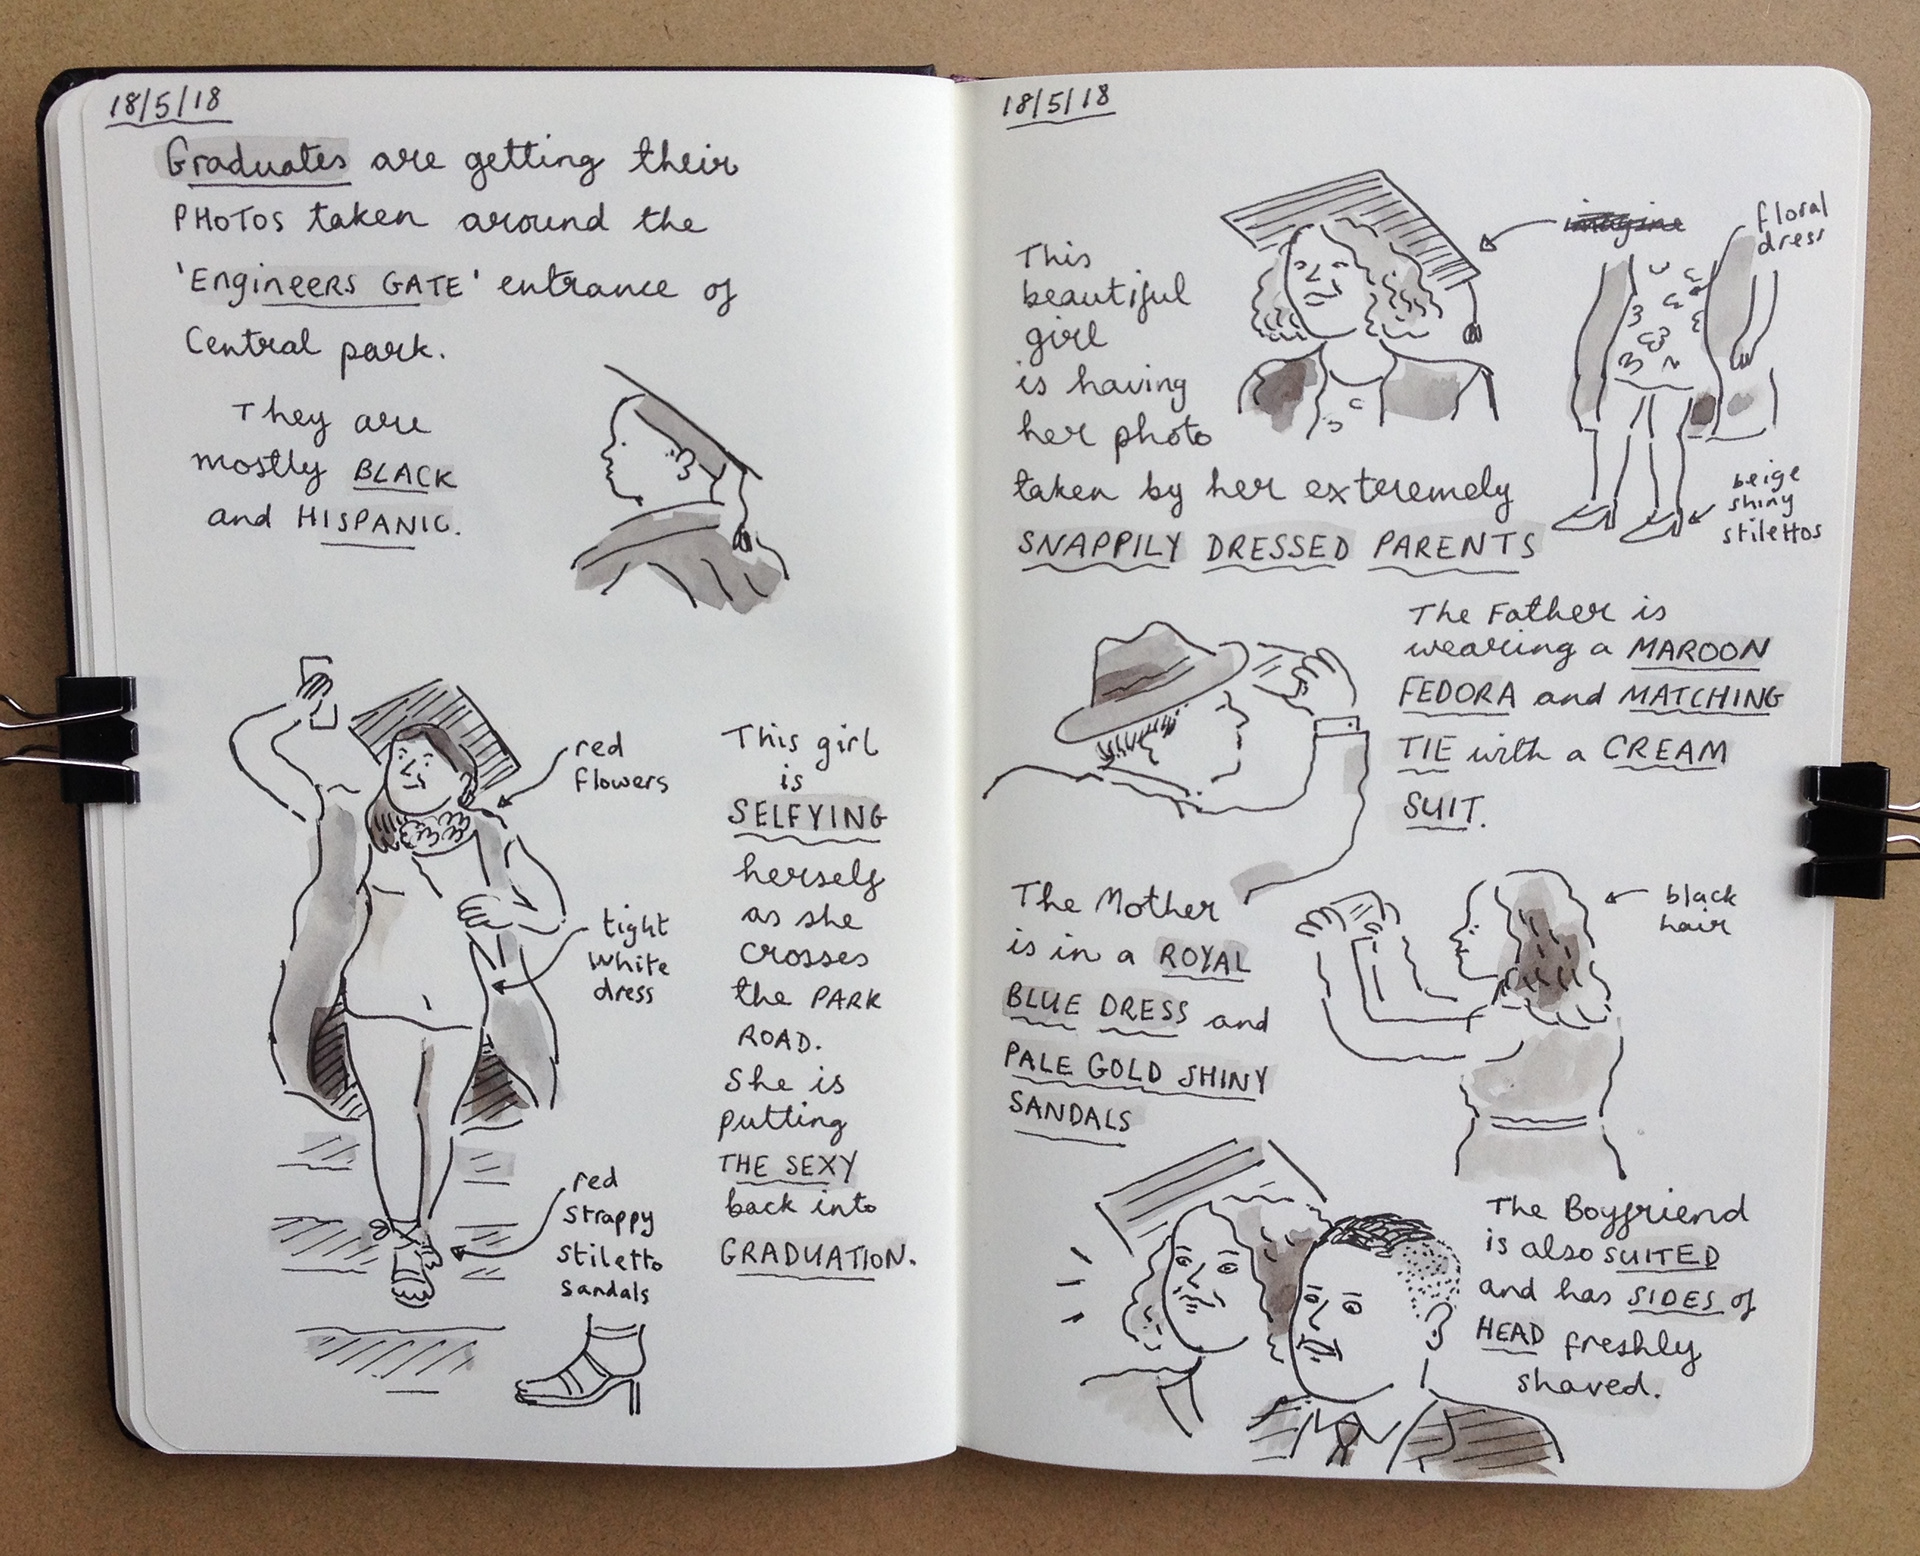 18/5/18
Graduates are getting their
PHOTOS taken around the
'ENGINEERS GATE' entrance of
Central park.
They are
mostly BLACK
and HISPANIC.
red
flowers
tight
white
dress
red
strappy
stiletto
sandals
This girl
is
SELFYING
herself
as she
crosses
the PARK
ROAD.
She is
putting
THE SEXY
back into
GRADUATION.
18/5/18
This
beautiful
girl
is having
her photo
taken by her extremely
SNAPPILY DRESSED PARENTS
imagine
floral
dress
beige
shiny
stilettos
The Father is
wearing a MAROON
FEDORA and MATCHING
TIE with a CREAM
SUIT.
The Mother
is in a ROYAL
BLUE DRESS and
PALE GOLD SHINY
SANDALS
black
hair
The Boyfriend
is also SUITED
and has SIDES of
HEAD freshly
shaved.